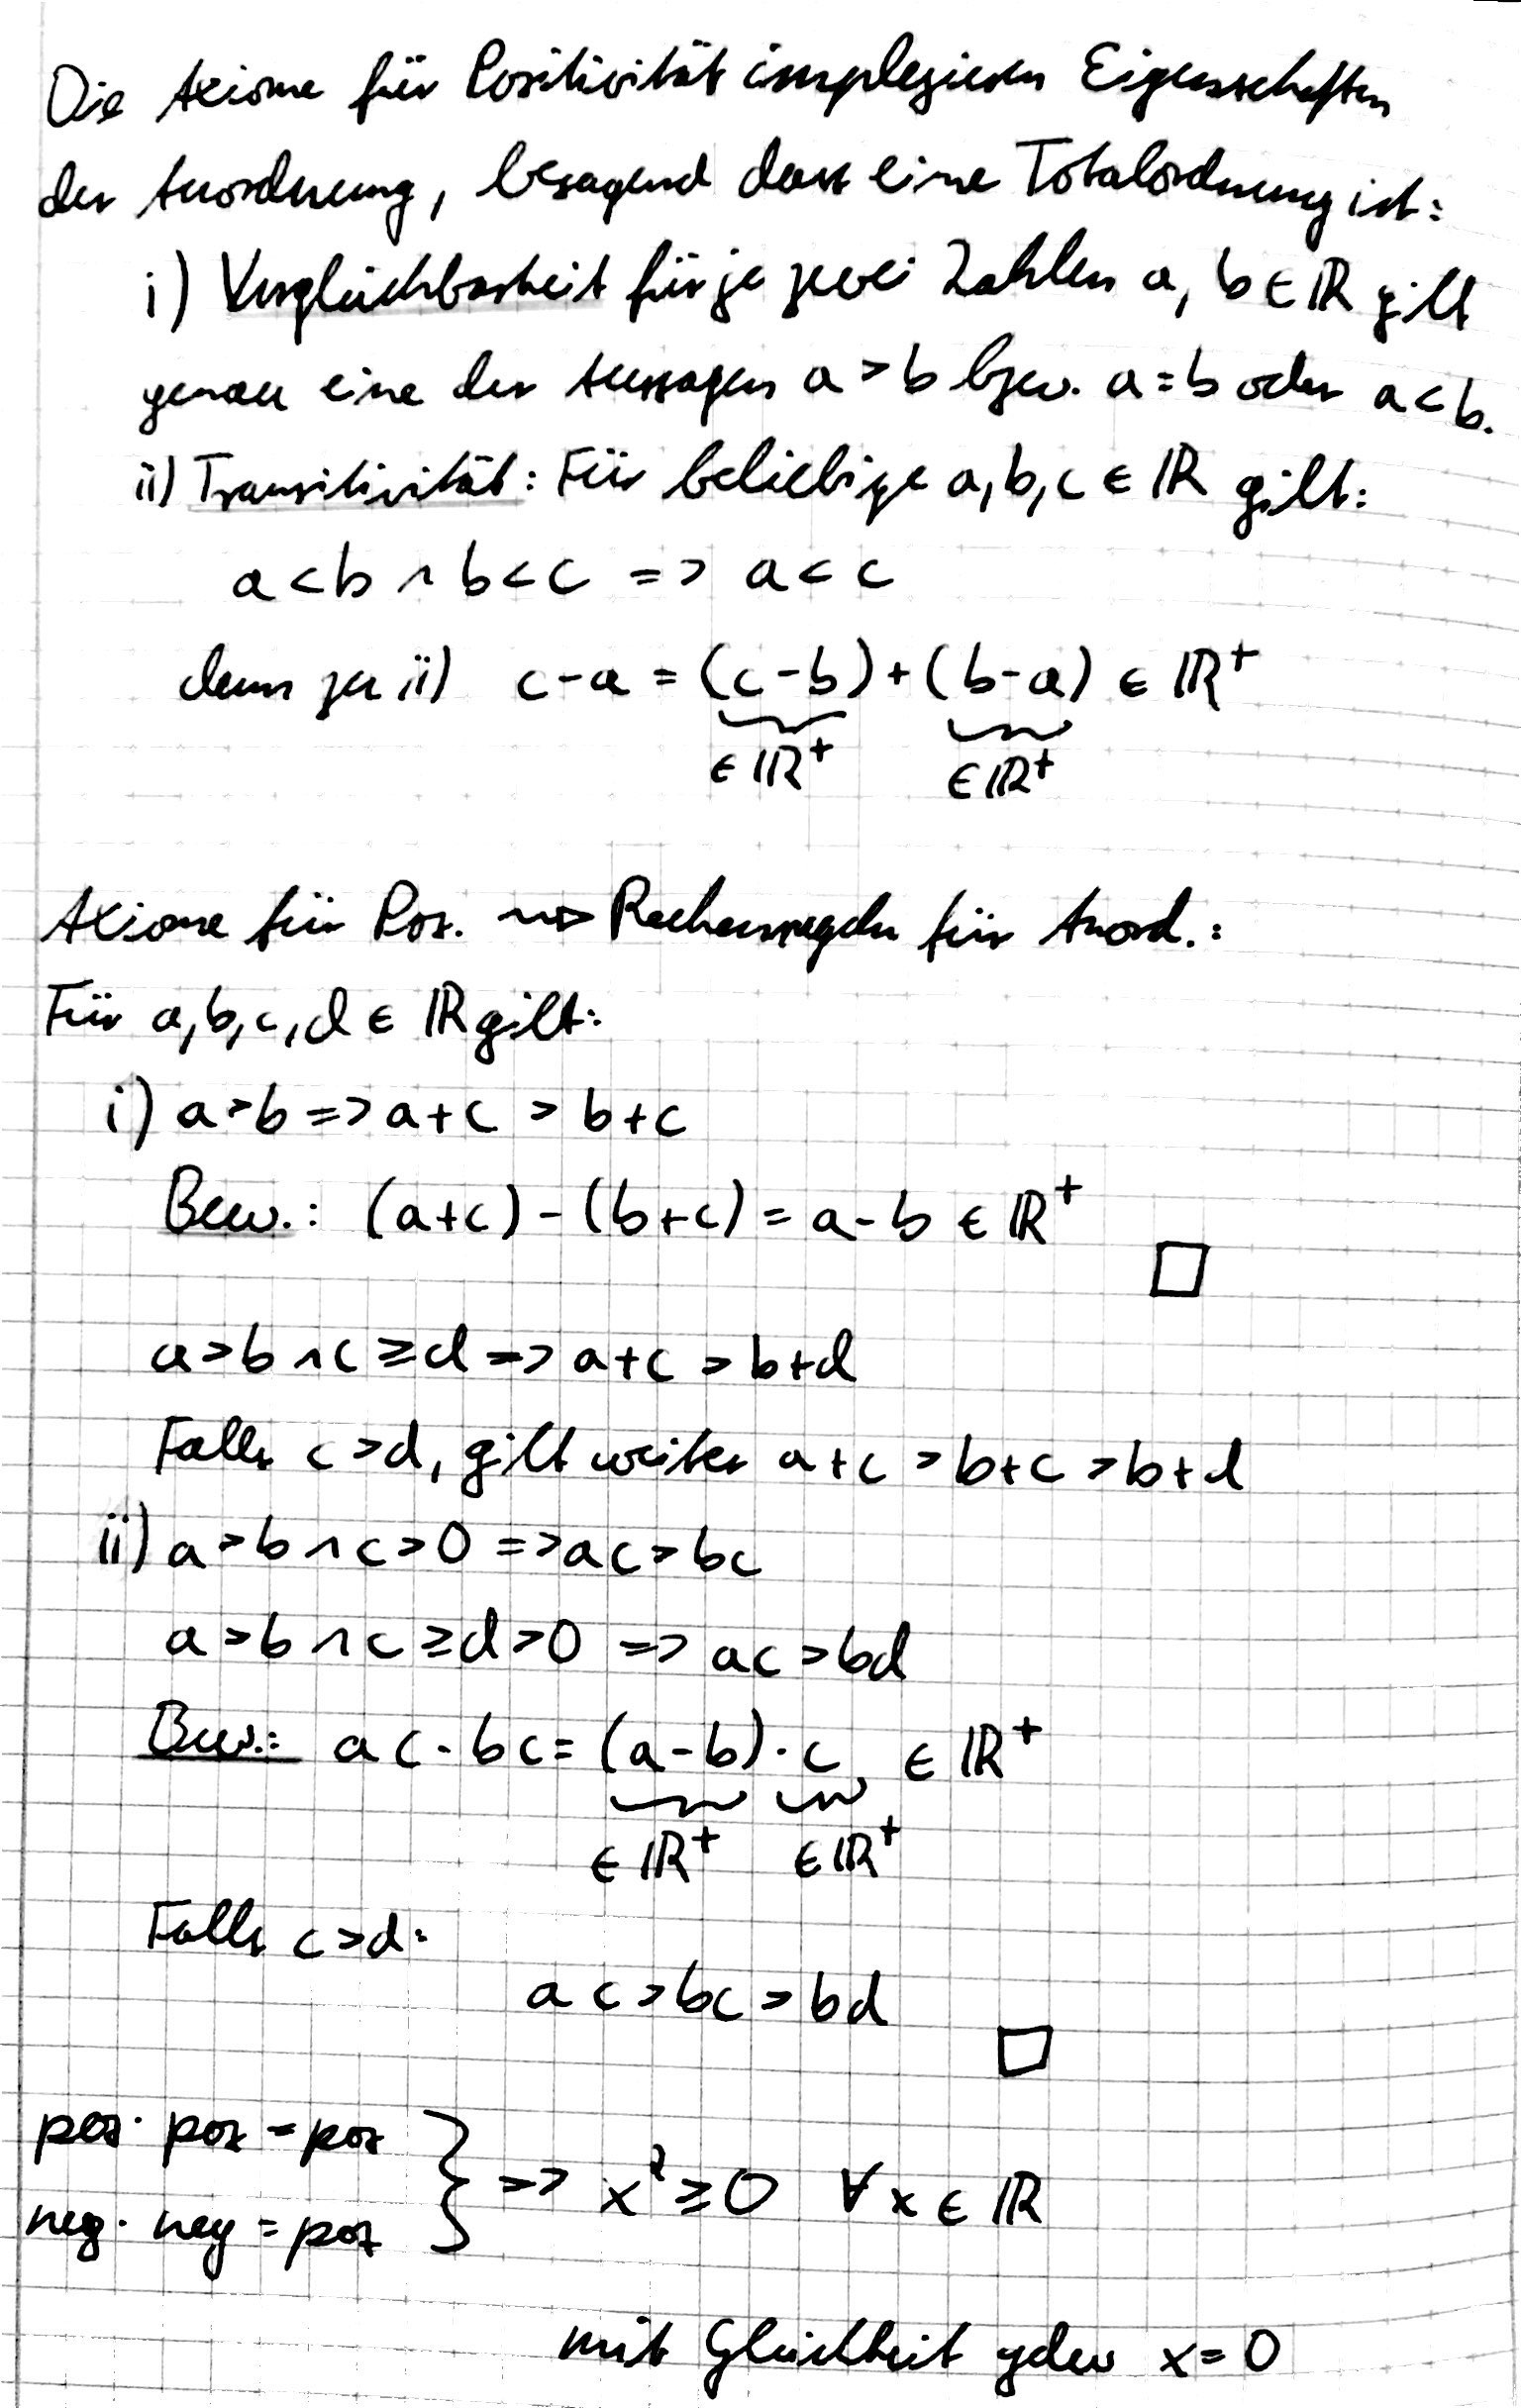 Die Axiome für Positivität implizieren Eigenschaften
der Anordnung, besagend dass eine Totalordnung ist:
i) Vergleichbarkeit für je zwei Zahlen a, b ∈ ℝ gilt
genau eine der Aussagen a > b bzw. a = b oder a < b.
ii) Transitivität: Für beliebige a, b, c ∈ ℝ gilt:
a < b ∧ b < c => a < c
denn zu ii) c - a = (c - b) + (b - a) ∈ ℝ⁺
∈ ℝ⁺ ∈ ℝ⁺
Axiome für Pos. ⇝ Rechenregeln für Anord.:
Für a, b, c, d ∈ ℝ gilt:
i) a > b => a + c > b + c
Bew.: (a + c) - (b + c) = a - b ∈ ℝ⁺ □
a > b ∧ c ≥ d => a + c > b + d
Falls c > d, gilt weiter a + c > b + c > b + d
ii) a > b ∧ c > 0 => ac > bc
a > b ∧ c ≥ d > 0 => ac > bd
Bew.: ac - bc = (a - b) · c ∈ ℝ⁺
∈ ℝ⁺ ∈ ℝ⁺
Falls c > d:
ac > bc > bd □
pos · pos = pos
neg · neg = pos } => x² ≥ 0 ∀ x ∈ ℝ
mit Gleichheit gdw x = 0